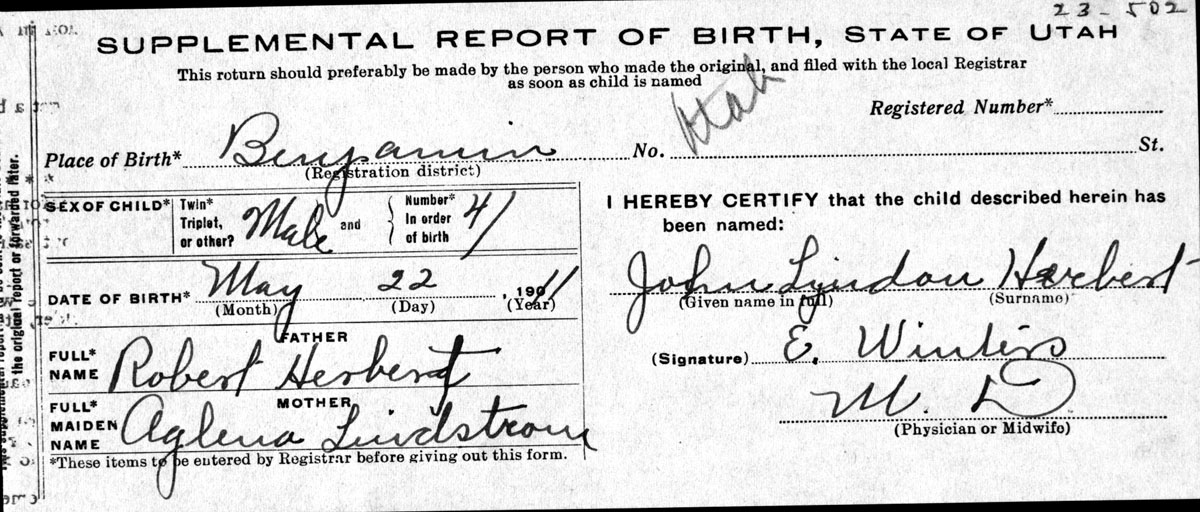 23-502
SUPPLEMENTAL REPORT OF BIRTH, STATE OF UTAH
This return should preferably be made by the person who made the original, and filed with the local Registrar
as soon as child is named
Utah
Registered Number*
Place of Birth* Benjamin No. St.
(Registration district)
SEX OF CHILD* Twin* Triplet, or other? Male and Number* In order of birth 4
I HEREBY CERTIFY that the child described herein has
been named:
DATE OF BIRTH* May 22, 1911
(Month) (Day) (Year)
John Lindon Herbert
(Given name in full) (Surname)
FATHER
FULL* NAME Robert Herbert
(Signature) E. Winters
MOTHER
FULL* MAIDEN NAME Aglena Lindstrom
M. D.
(Physician or Midwife)
*These items to be entered by Registrar before giving out this form.
the original report or forwarded later.